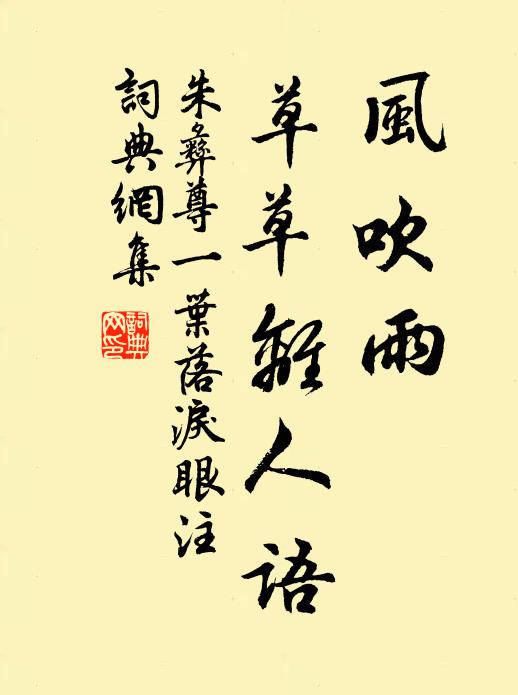 風吹雨
草草離人語
朱彝尊一葉落淚眼注
詞典網集
詞典網印